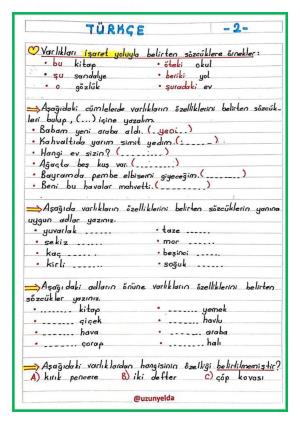 TÜRKÇE -2-
Varlıkları işaret yoluyla belirten sözcüklere örnekler:
• bu kitap • öteki okul
• şu sandalye • beriki yol
• o gözlük • şuradaki ev
Aşağıdaki cümlelerde varlıkların özelliklerini belirten sözcük-
leri bulup, (...) içine yazalım.
• Babam yeni araba aldı. (.yeni...)
• Kahvaltıda yarım simit yedim. (........)
• Hangi ev sizin? (........)
• Ağaçta beş kuş var. (........)
• Bayramda pembe elbisemi giyeceğim. (........)
• Beni bu havalar mahvetti. (........)
Aşağıda varlıkların özelliklerini belirten sözcüklerin yanına
uygun adlar yazınız.
• yuvarlak ........ • taze ........
• sekiz ........ • mor ........
• kaç ........ • beşinci ........
• kirli ........ • soğuk ........
Aşağıdaki adların önüne varlıkların özelliklerini belirten
sözcükler yazınız.
• ........ kitap • ........ yemek
• ........ çiçek • ........ havlu
• ........ hava • ........ araba
• ........ çorap • ........ halı
Aşağıdaki varlıklardan hangisinin özelliği belirtilmemiştir?
A) kırık pencere B) iki defter C) çöp kovası
@uzunyelda